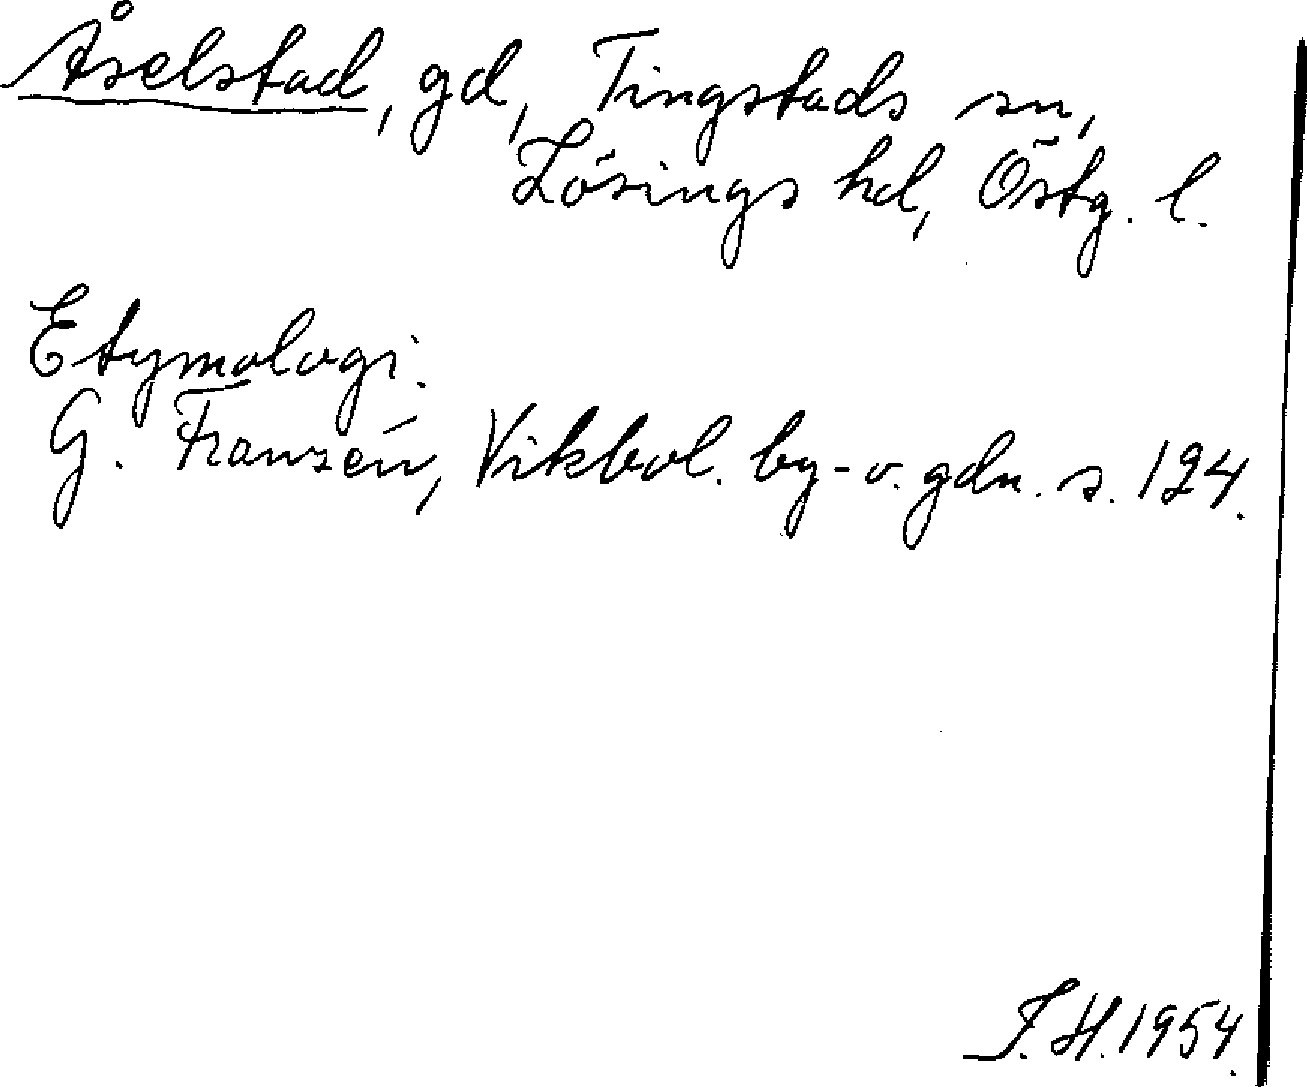 Åselstad, gd, Tingstads sn,
Lösings hd, Östg. l.
Etymologi.
G. Franzén, Vikbol. by- o. gdn. s. 124.
J. H. 1954.